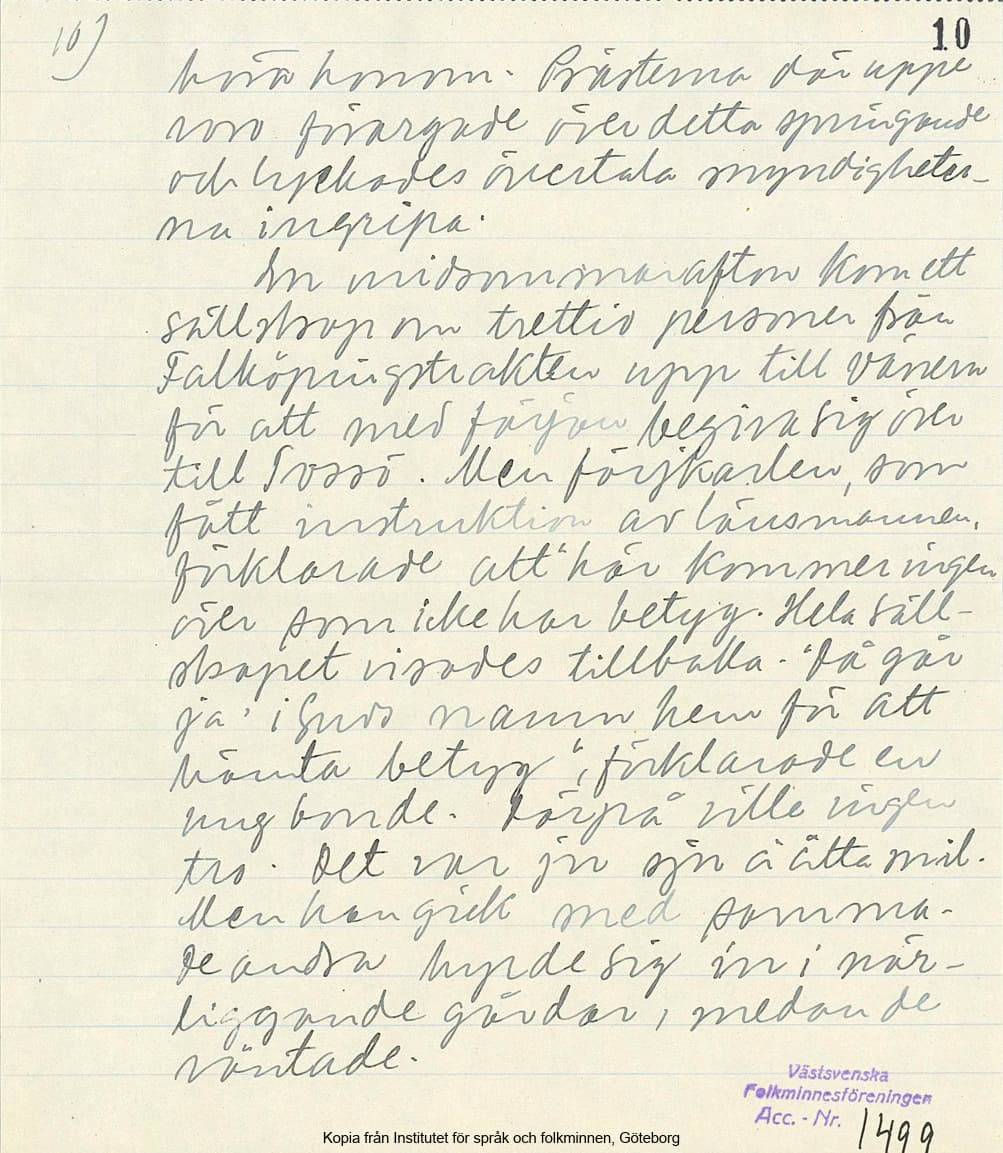 10)
10
höra honom. Prästerna där uppe
voro förargade över detta springande
och lyckades övertala myndigheter-
na ingripa.
En midsommarafton kom ett
sällskap om trettio personer från
Falköpingstrakten upp till Vänern
för att med färjan begiva sig över
till Torsö. Men färjkarlen, som
fått instruktion av länsmannen,
förklarade att "här kommer ingen
över som icke har betyg. Hela säll-
skapet visades tillbaka. "Då går
ja' i Guds namn hem för att
hämta betyg", förklarade en
ung bonde. Därpå ville ingen
tro. Det var ju sju à åtta mil.
Men han gick med samma.
De andra hyrde sig in i när-
liggande gårdar, medan de
väntade.
Västsvenska
Folkminnesföreningen
Acc. - Nr. 1499
Kopia från Institutet för språk och folkminnen, Göteborg